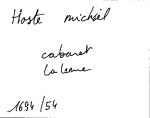 Hoste michsël
cabaret
La Leane
1694/54